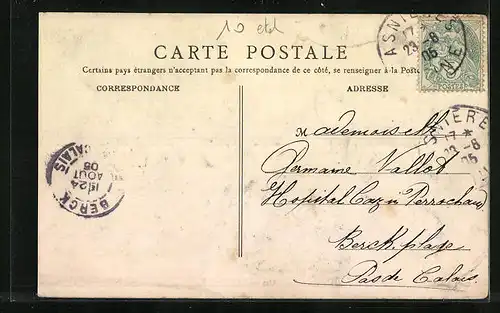 10 
CARTE POSTALE
Certains pays étrangers n'acceptant pas la correspondance de ce côté, se renseigner à la Poste
CORRESPONDANCE
ADRESSE
ASNIÈRES
17
23 -8
05
SEINE
ASNIÈRES
17 *
23 -8
05
Mademoiselle
Germaine Vallod
Hopital Cazin Perrochaud
Berck plage
Pas de Calais
CALAIS
24
AOUT
05
BERCK